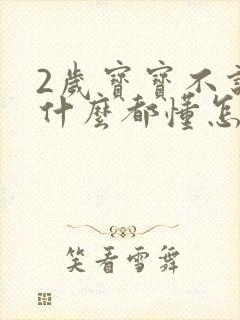 2歲寶寶不
什麼都懂怎
笑看雪舞